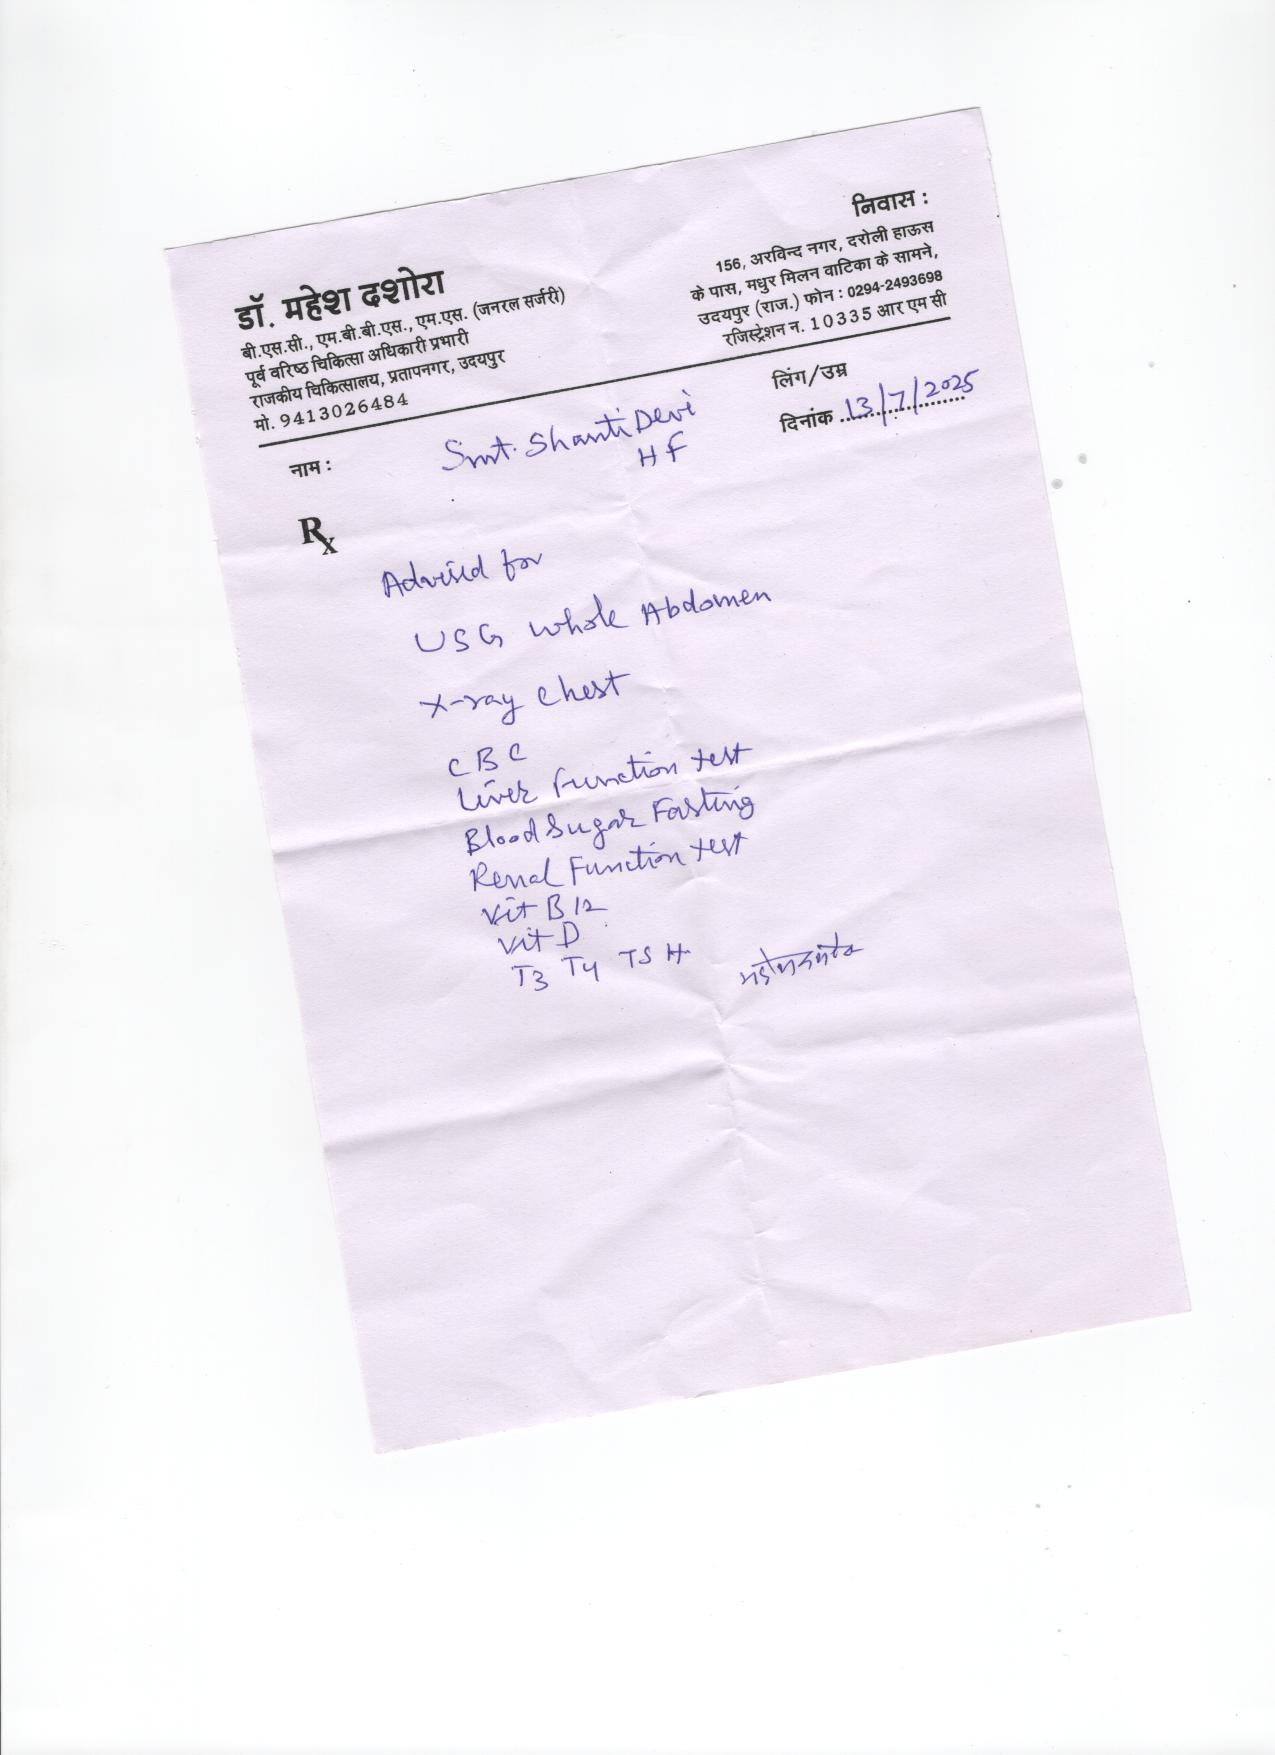 डॉ. महेश दशोरा
बी.एस.सी., एम.बी.बी.एस., एम.एस. (जनरल सर्जरी)
पूर्व वरिष्ठ चिकित्सा अधिकारी प्रभारी
राजकीय चिकित्सालय, प्रतापनगर, उदयपुर
मो. 9413026484
निवास :
156, अरविन्द नगर, दरोली हाऊस
के पास, मधुर मिलन वाटिका के सामने,
उदयपुर (राज.) फोन : 0294-2493698
रजिस्ट्रेशन न. 10335 आर एम सी
नाम : Smt. Shanti Devi
H F
लिंग/उम्र
दिनांक 13/7/2025
Rx
Advised for
USG Whole Abdomen
X-ray Chest
CBC
Liver Function test
Blood Sugar Fasting
Renal Function test
Vit B12
Vit D
T3 T4 TSH